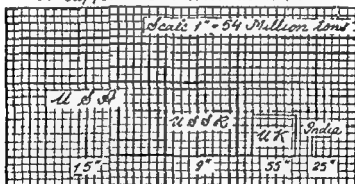 Scale 1" = 54 Million tons
U S A
U S S R
UK
India
15"
9"
55"
25"